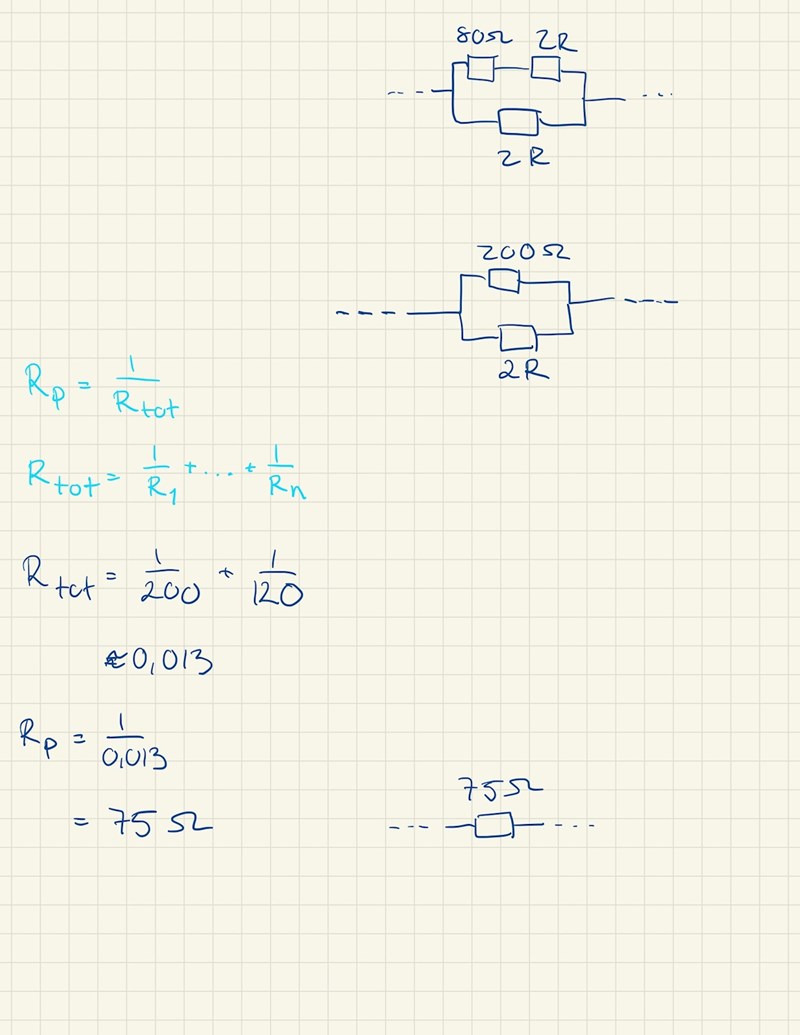 80Ω 2R
2R
200Ω
2R
Rp = 1/Rtot
Rtot = 1/R1 + ... + 1/Rn
Rtot = 1/200 + 1/120
≈ 0,013
Rp = 1/0,013
= 75 Ω
75Ω